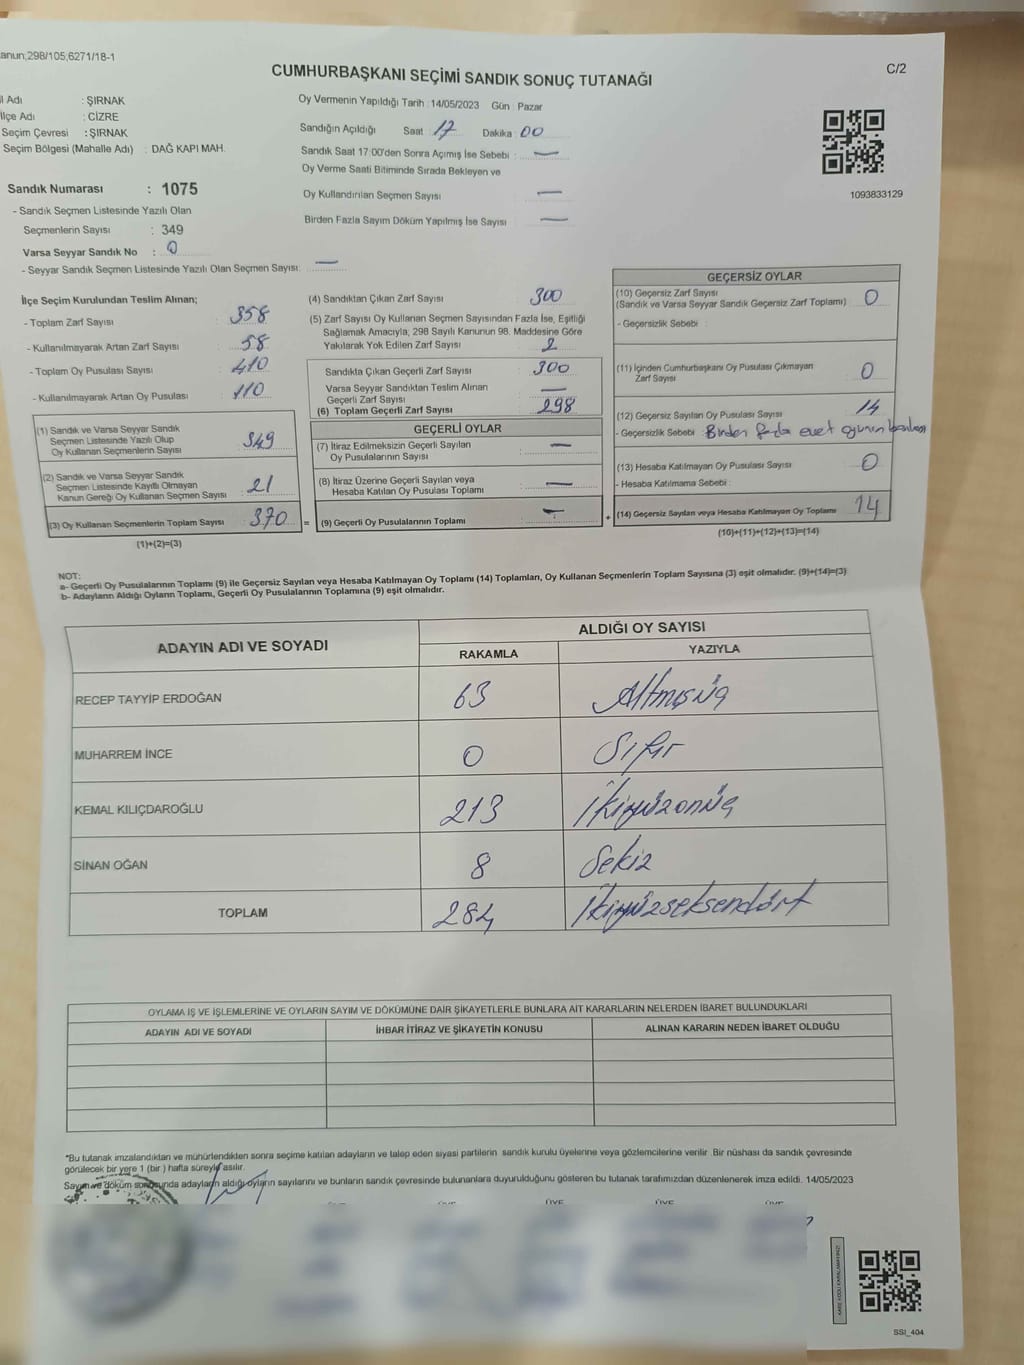 anun;298/105;6271/18-1
C/2
CUMHURBAŞKANI SEÇİMİ SANDIK SONUÇ TUTANAĞI
l Adı : ŞIRNAK
lçe Adı : CİZRE
Seçim Çevresi : ŞIRNAK
Seçim Bölgesi (Mahalle Adı) : DAĞ KAPI MAH.
Sandık Numarası : 1075
- Sandık Seçmen Listesinde Yazılı Olan
Seçmenlerin Sayısı : 349
Varsa Seyyar Sandık No : 0
- Seyyar Sandık Seçmen Listesinde Yazılı Olan Seçmen Sayısı: —
Oy Vermenin Yapıldığı Tarih : 14/05/2023 Gün : Pazar
Sandığın Açıldığı Saat 17 Dakika : 00
Sandık Saat 17:00'den Sonra Açımış İse Sebebi : —
Oy Verme Saati Bitiminde Sırada Bekleyen ve
Oy Kullandırılan Seçmen Sayısı : —
Birden Fazla Sayım Döküm Yapılmış İse Sayısı : —
1093833129
İlçe Seçim Kurulundan Teslim Alınan;
- Toplam Zarf Sayısı : 358
- Kullanılmayarak Artan Zarf Sayısı : 58
- Toplam Oy Pusulası Sayısı : 410
- Kullanılmayarak Artan Oy Pusulası : 110
(1) Sandık ve Varsa Seyyar Sandık
Seçmen Listesinde Yazılı Olup
Oy Kullanan Seçmenlerin Sayısı : 349
(2) Sandık ve Varsa Seyyar Sandık
Seçmen Listesinde Kayıtlı Olmayan
Kanun Gereği Oy Kullanan Seçmen Sayısı : 21
(3) Oy Kullanan Seçmenlerin Toplam Sayısı : 370
(1)+(2)=(3)
(4) Sandıktan Çıkan Zarf Sayısı : 300
(5) Zarf Sayısı Oy Kullanan Seçmen Sayısından Fazla İse, Eşitliği
Sağlamak Amacıyla; 298 Sayılı Kanunun 98. Maddesine Göre
Yakılarak Yok Edilen Zarf Sayısı : 2
Sandıkta Çıkan Geçerli Zarf Sayısı : 300
Varsa Seyyar Sandıktan Teslim Alınan
Geçerli Zarf Sayısı : —
(6) Toplam Geçerli Zarf Sayısı : 298
GEÇERLİ OYLAR
(7) İtiraz Edilmeksizin Geçerli Sayılan
Oy Pusulalarının Sayısı : —
(8) İtiraz Üzerine Geçerli Sayılan veya
Hesaba Katılan Oy Pusulası Toplamı : —
= (9) Geçerli Oy Pusulalarının Toplamı : —
GEÇERSİZ OYLAR
(10) Geçersiz Zarf Sayısı
(Sandık ve Varsa Seyyar Sandık Geçersiz Zarf Toplamı) : 0
- Geçersizlik Sebebi :
(11) İçinden Cumhurbaşkanı Oy Pusulası Çıkmayan
Zarf Sayısı : 0
(12) Geçersiz Sayılan Oy Pusulası Sayısı : 14
- Geçersizlik Sebebi : Birden fazla evet oyunun
(13) Hesaba Katılmayan Oy Pusulası Sayısı : 0
- Hesaba Katılmama Sebebi :
+ (14) Geçersiz Sayılan veya Hesaba Katılmayan Oy Toplamı : 14
(10)+(11)+(12)+(13)=(14)
NOT:
a- Geçerli Oy Pusulalarının Toplamı (9) ile Geçersiz Sayılan veya Hesaba Katılmayan Oy Toplamı (14) Toplamları, Oy Kullanan Seçmenlerin Toplam Sayısına (3) eşit olmalıdır. (9)+(14)=(3)
b- Adayların Aldığı Oyların Toplamı, Geçerli Oy Pusulalarının Toplamına (9) eşit olmalıdır.
ADAYIN ADI VE SOYADI
ALDIĞI OY SAYISI
RAKAMLA YAZIYLA
RECEP TAYYİP ERDOĞAN 63 Altmışüç
MUHARREM İNCE 0 Sıfır
KEMAL KILIÇDAROĞLU 213 İkiyüzonüç
SİNAN OĞAN 8 Sekiz
TOPLAM 284 İkiyüzseksendört
OYLAMA İŞ VE İŞLEMLERİNE VE OYLARIN SAYIM VE DÖKÜMÜNE DAİR ŞİKAYETLERLE BUNLARA AİT KARARLARIN NELERDEN İBARET BULUNDUKLARI
ADAYIN ADI VE SOYADI İHBAR İTİRAZ VE ŞİKAYETİN KONUSU ALINAN KARARIN NEDEN İBARET OLDUĞU
*Bu tutanak imzalandıktan ve mühürlendikten sonra seçime katılan adayların ve talep eden siyasi partilerin sandık kurulu üyelerine veya gözlemcilerine verilir. Bir nüshası da sandık çevresinde
görülecek bir yere 1 (bir ) hafta süreyle asılır.
Sayım ve döküm sonucunda adayların aldığı oyların sayılarını ve bunların sandık çevresinde bulunanlara duyurulduğunu gösteren bu tutanak tarafımızdan düzenlenerek imza edildi. 14/05/2023
ÜYE ÜYE ÜYE ÜYE
SSI_404